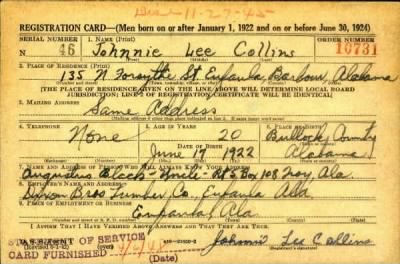 Dis- 11-27-45
REGISTRATION CARD—(Men born on or after January 1, 1922 and on or before June 30, 1924)
SERIAL NUMBER 1. NAME (Print) ORDER NUMBER
N 46 Johnnie Lee Collins 10731
(First) (Middle) (Last)
2. PLACE OF RESIDENCE (Print)
135 N. Forsythe St. Eufaula, Barbour, Alabama
[THE PLACE OF RESIDENCE GIVEN ON THE LINE ABOVE WILL DETERMINE LOCAL BOARD
JURISDICTION; LINE 2 OF REGISTRATION CERTIFICATE WILL BE IDENTICAL]
3. MAILING ADDRESS
Same Address
4. TELEPHONE 5. AGE IN YEARS 6. PLACE OF BIRTH
None 20 Bullock County
DATE OF BIRTH
June 17 1922 Alabama
7. NAME AND ADDRESS OF PERSON WHO WILL ALWAYS KNOW YOUR ADDRESS
Augustus Black - Uncle - Rt 5 Box 108 Troy, Ala.
8. EMPLOYER'S NAME AND ADDRESS
Dixon Bros Lumber Co., Eufaula Ala
9. PLACE OF EMPLOYMENT OR BUSINESS
Eufaula, Ala.
I AFFIRM THAT I HAVE VERIFIED ABOVE ANSWERS AND THAT THEY ARE TRUE.
OF SERVICE
CARD FURNISHED Johnnie Lee Collins
(Date)